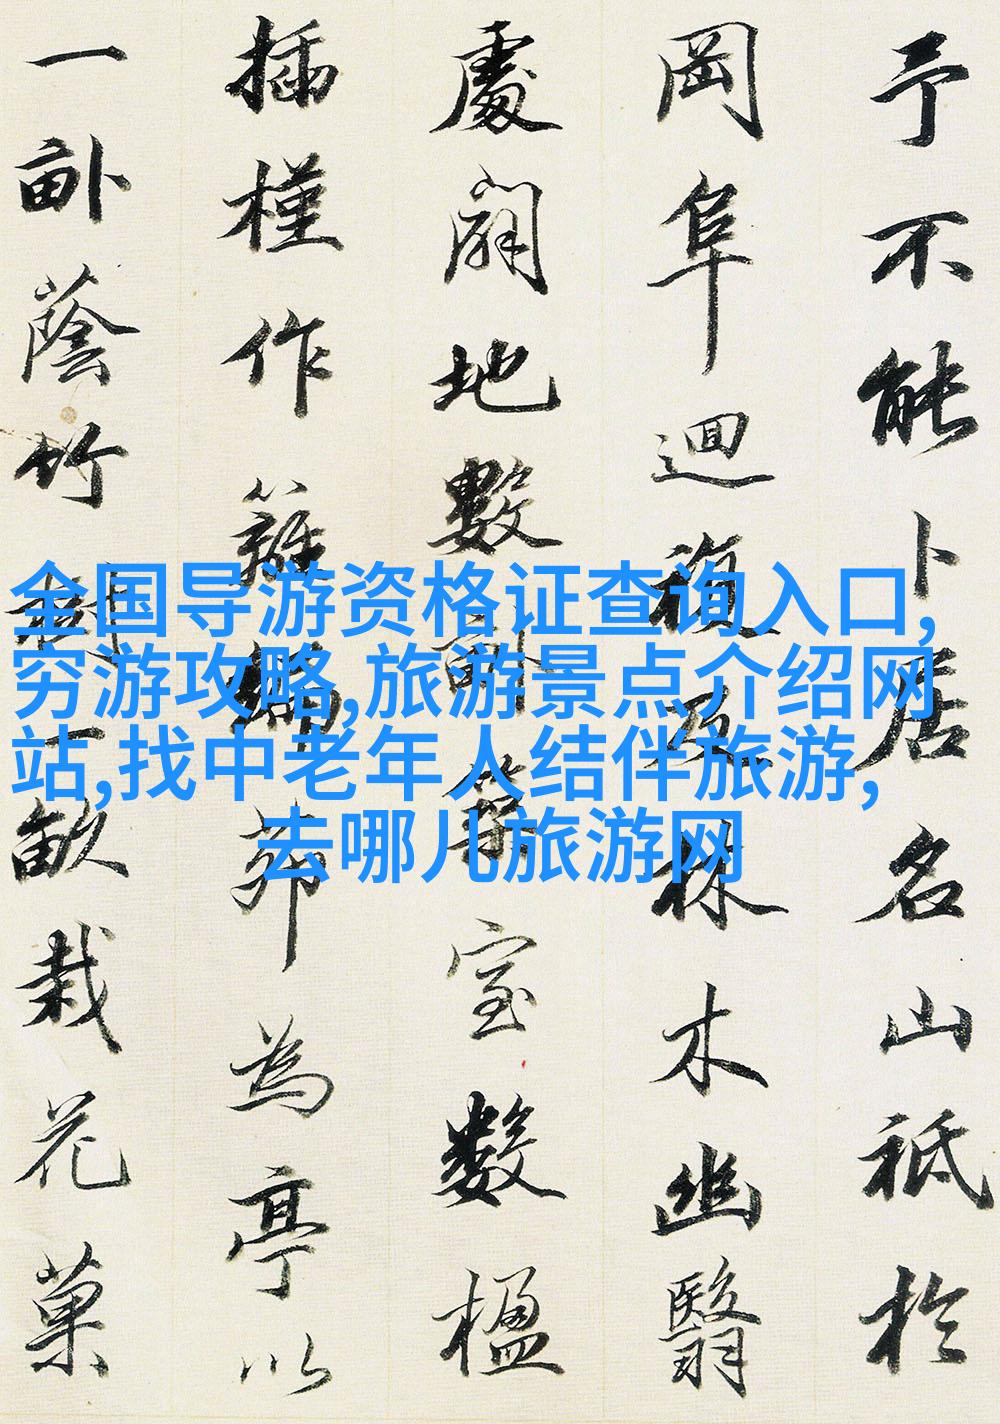 予不能卜居名山祗於
岡阜迴複及林木幽翳
處闢地數畝築室數楹
插槿作籬編茆為亭以
一畝蔭竹樹一畝栽花菓
全国导游资格证查询入口,
穷游攻略,旅游景点介绍网
站,找中老年人结伴旅游,
去哪儿旅游网